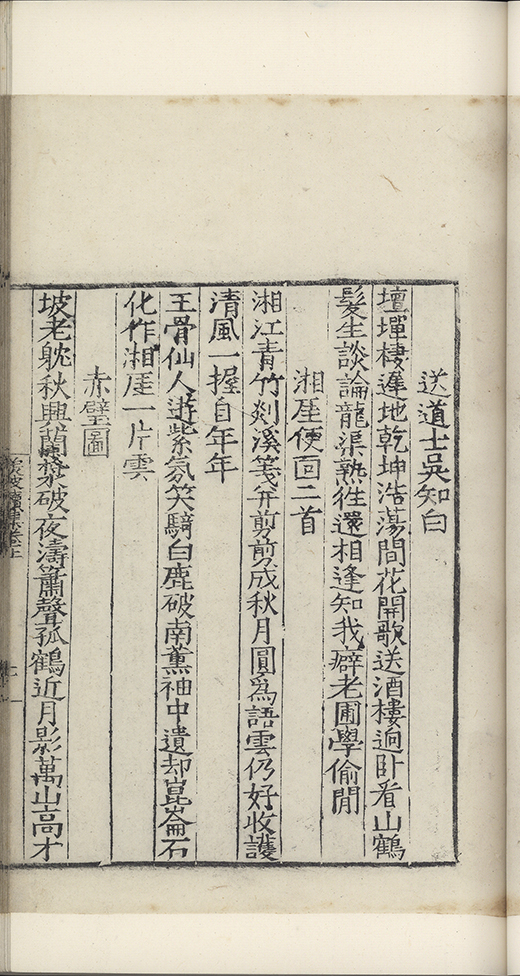 送道士吳知白
壇墠棲遲地乾坤浩蕩間花開歌送酒樓迥卧看山鶴
髮生談論龍渠熟徃還相逢知我癖老圃學偷閒
湘厓便靣二首
湘江青竹剡溪箋并剪剪成秋月圓爲語雲仍好收護
清風一握自年年
玉骨仙人遊紫氛笑騎白鹿破南薰袖中遺却崑崙石
化作湘厓一片雲
赤壁圖
坡老躭秋興蘭槳破夜濤簫聲孤鶴近月影萬山高才